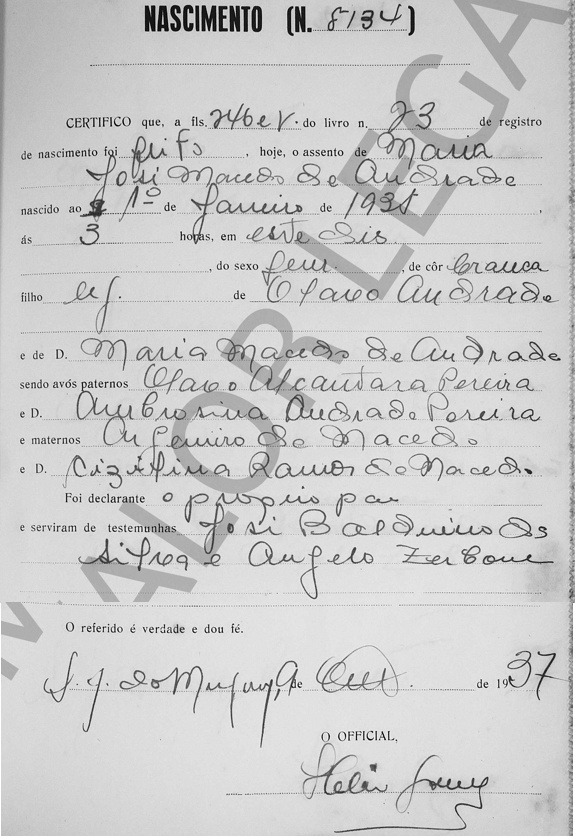 NASCIMENTO (N. 8134)
CERTIFICO que, a fls. 246 e v. do livro n. 23 de registro
de nascimento foi , hoje, o assento de Maria
José Macedo de Andrade
nascido ao 1º de Janeiro de 193
ás 3 horas, em este dis
, do sexo fem. , de côr branca
filho de Olavo Andrade
e de D. Maria Macedo de Andrade
sendo avós paternos Olavo Alcantara Pereira
e D. Ambrosina Andrade Pereira
e maternos de Macedo
e D. Ramos de Macedo
Foi declarante o proprio pai
e serviram de testemunhas José Balduino da
Silva e Angelo Zerbone
O referido é verdade e dou fé.
S. J. do de Out. de 1937
O OFFICIAL,
SEM VALOR LEGAL